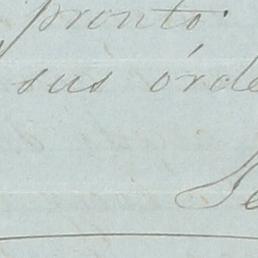 pronto.
sus órde
Se